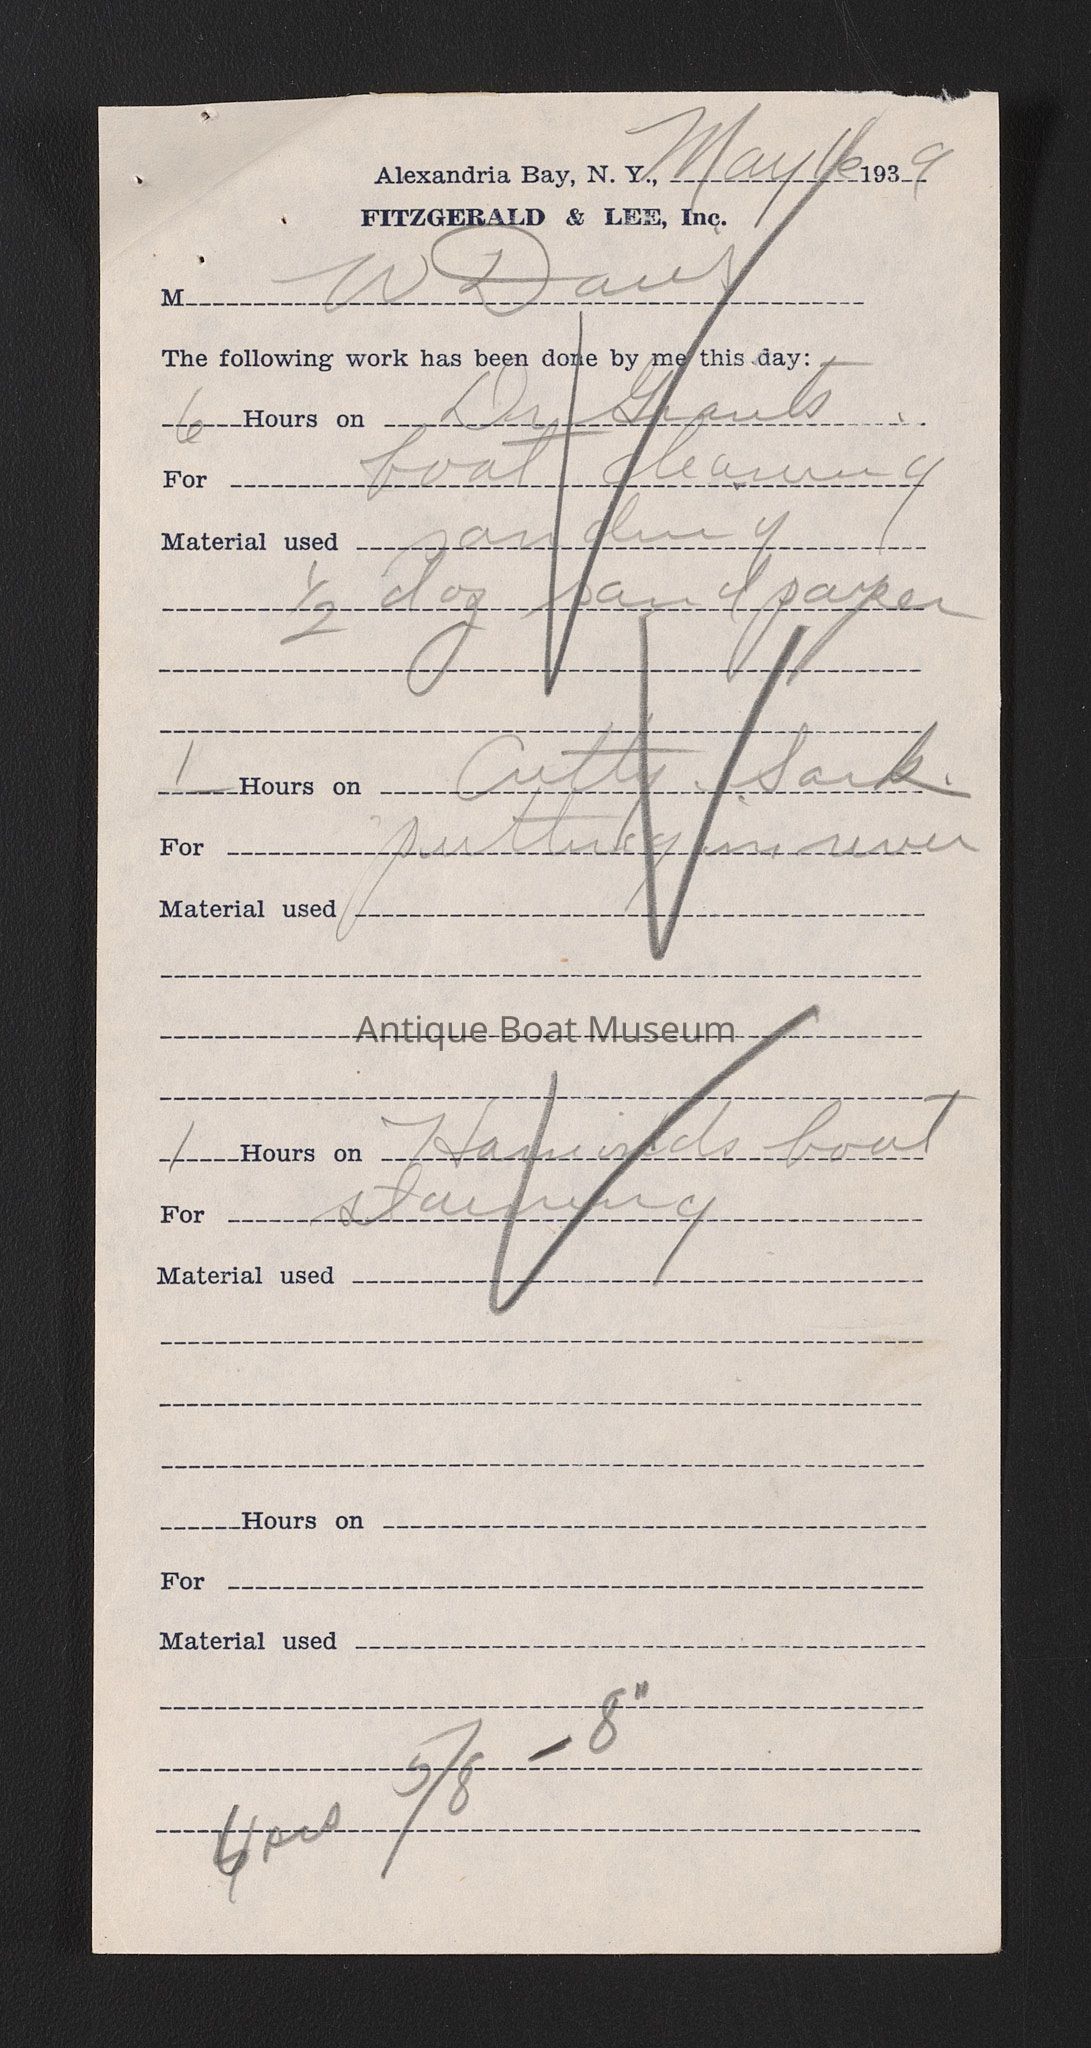 Alexandria Bay, N. Y., May 16 1939
FITZGERALD & LEE, Inc.
M W Davis
The following work has been done by me this day:
6 Hours on Dr Grants
For boat cleaning
Material used sanding
1/2 doz sandpaper
1 Hours on Cutty Sark.
For putting in
Material used
Antique Boat Museum
1 Hours on boat
For staining
Material used
Hours on
For
Material used
5/8 - 8"
pcs